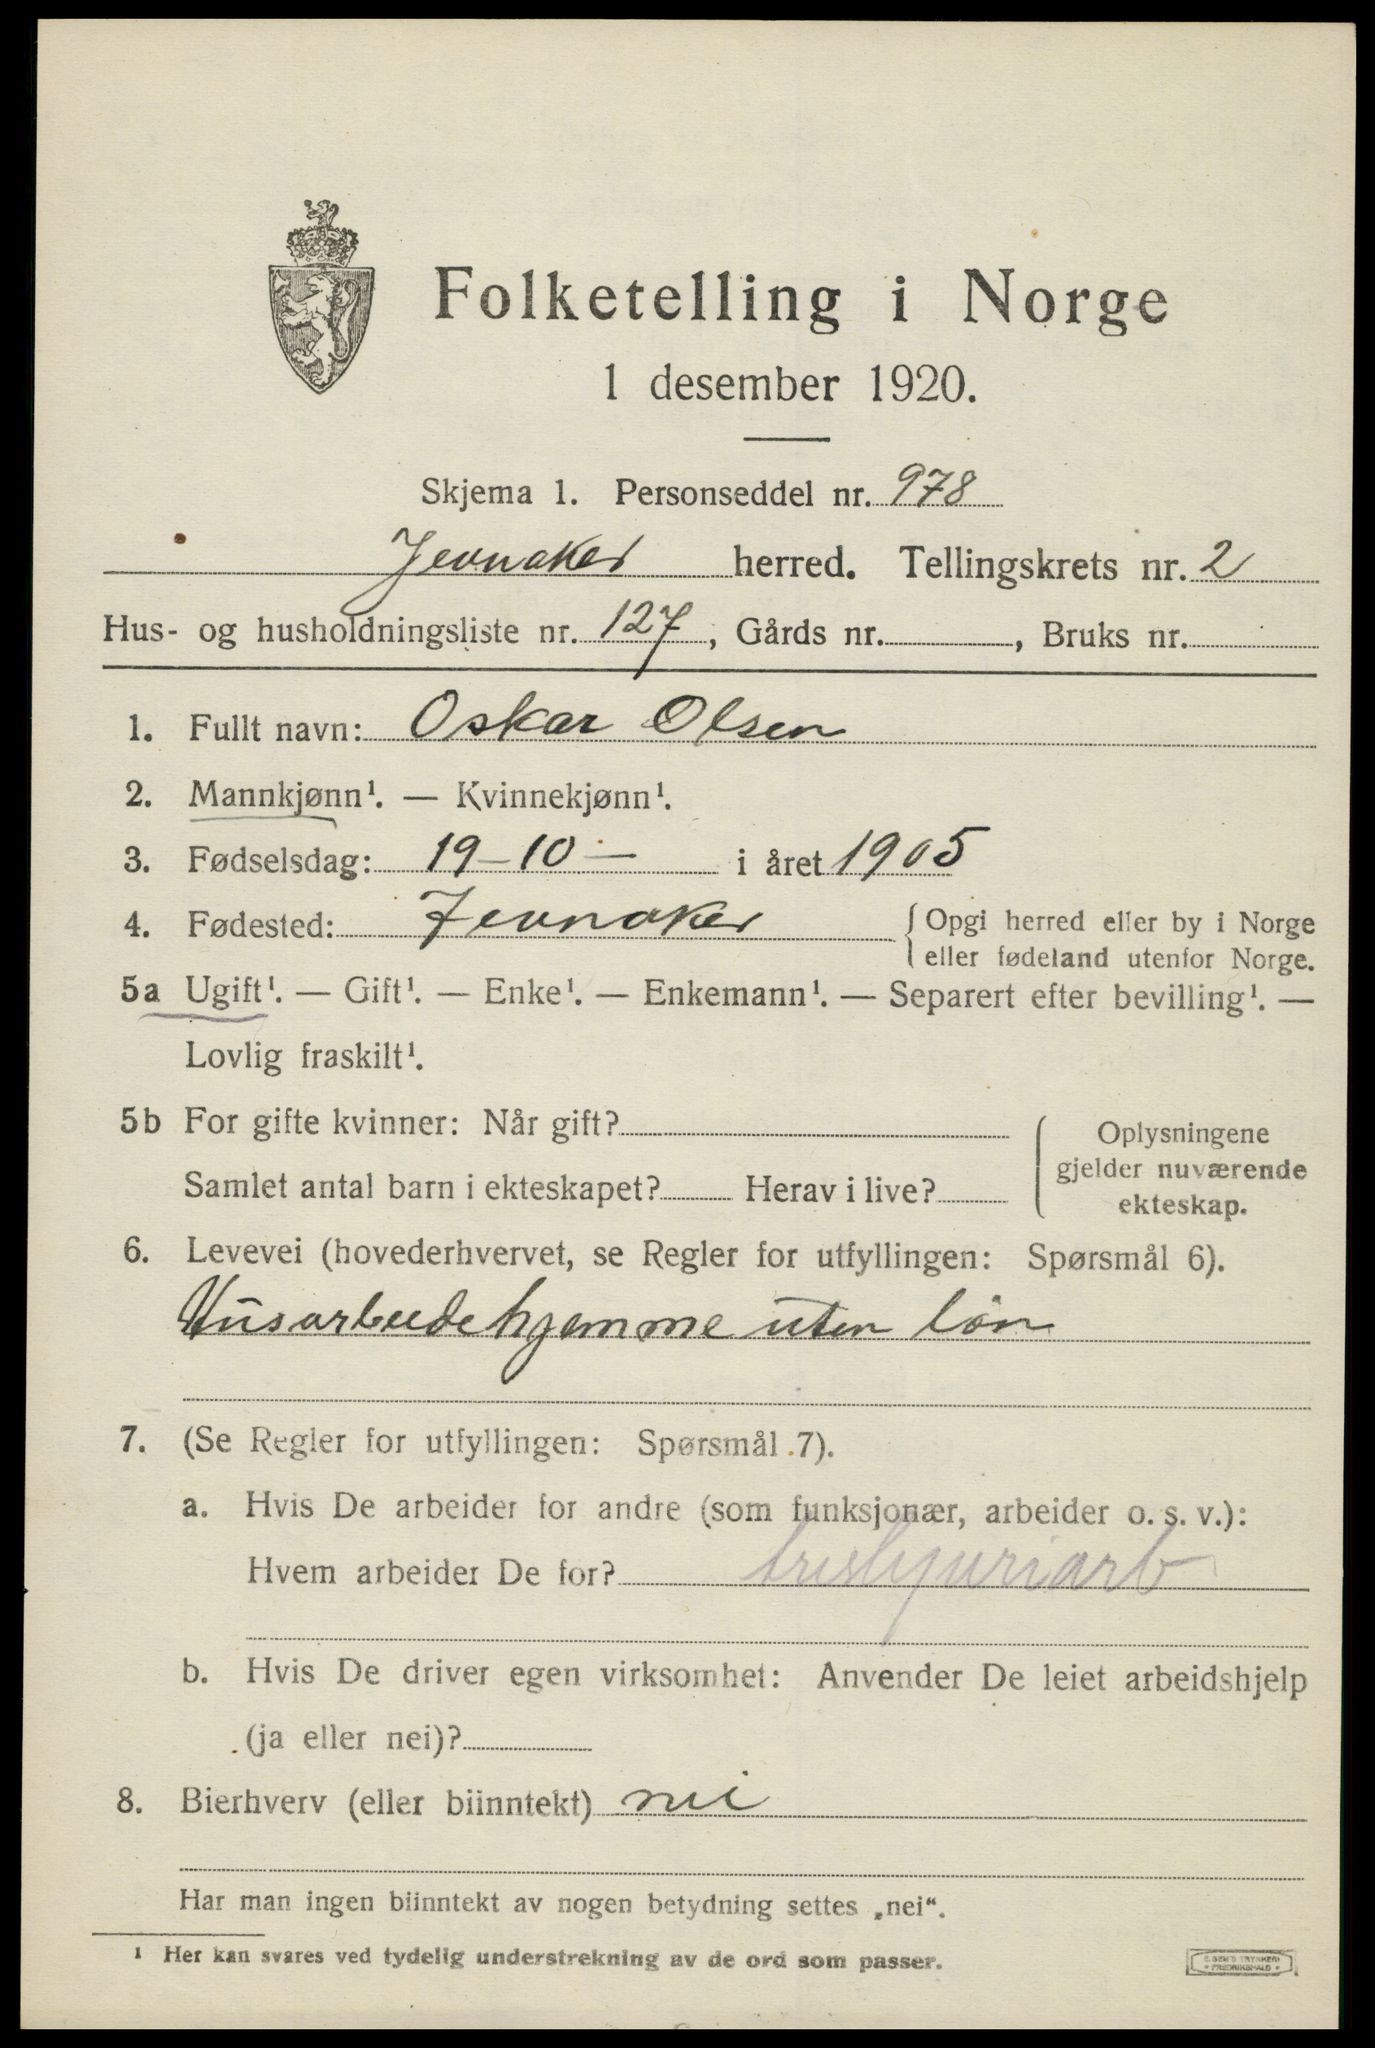 Folketelling i Norge
1 desember 1920.
Skjema 1. Personseddel nr. 978
Jevnaker herred. Tellingskrets nr. 2
Hus- og husholdningsliste nr. 127, Gårds nr. , Bruks nr.
1. Fullt navn: Oskar Olsen
2. Mannkjønn¹. — Kvinnekjønn¹.
3. Fødselsdag: 19-10- i året 1905
4. Fødested: Jevnaker { Opgi herred eller by i Norge
eller fødeland utenfor Norge.
5a Ugift¹. — Gift¹. — Enke¹. — Enkemann¹. — Separert efter bevilling¹. —
Lovlig fraskilt¹.
5b For gifte kvinner: Når gift?
Samlet antal barn i ekteskapet? Herav i live?
{ Oplysningene
gjelder nuværende
ekteskap.
6. Levevei (hovederhvervet, se Regler for utfyllingen: Spørsmål 6).
hjemme uten løn
7. (Se Regler for utfyllingen: Spørsmål 7).
a. Hvis De arbeider for andre (som funksjonær, arbeider o. s. v.):
Hvem arbeider De for?
b. Hvis De driver egen virksomhet: Anvender De leiet arbeidshjelp
(ja eller nei)?
8. Bierhverv (eller biinntekt) nei
Har man ingen biinntekt av nogen betydning settes „nei“.
¹ Her kan svares ved tydelig understrekning av de ord som passer.